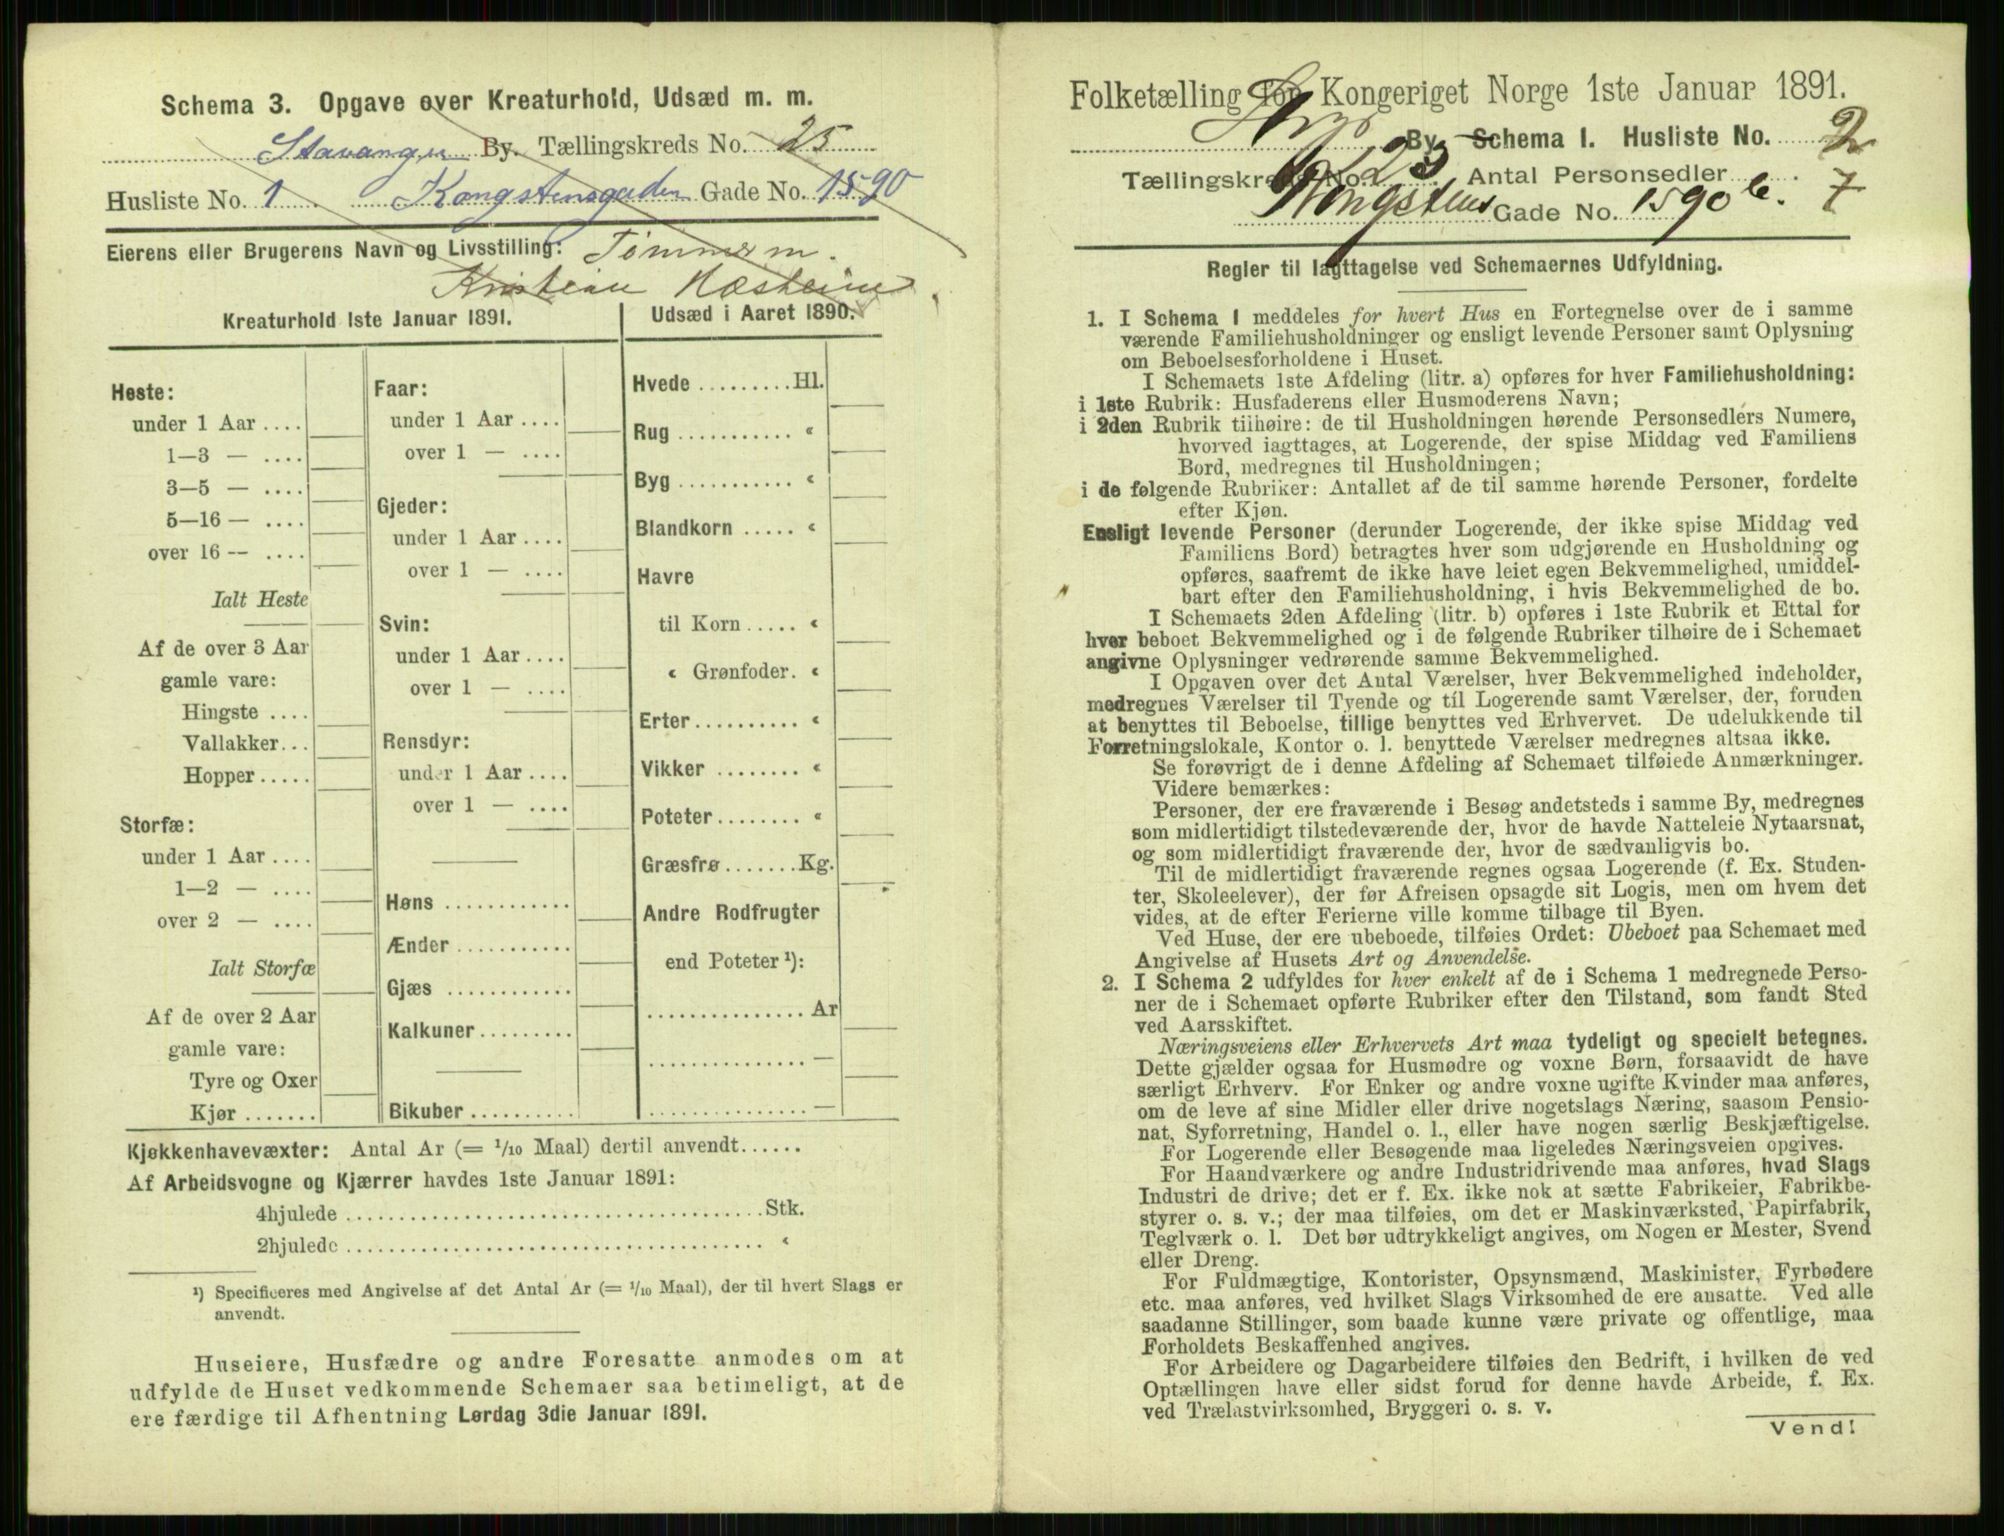 Schema 3. Opgave over Kreaturhold, Udsæd m. m.
Stavanger By. Tællingskreds No. 25
Husliste No. 1 Kongstensgaden Gade No. 1590
Eierens eller Brugerens Navn og Livsstilling: Tømmerm.
Kristian Næsheim
Kreaturhold 1ste Januar 1891.
Heste:
under 1 Aar ....
1—3 — ....
3—5 — ....
5—16 — ....
over 16 — ....
Ialt Heste
Af de over 3 Aar
gamle vare:
Hingste ....
Vallakker...
Hopper .....
Storfæ:
under 1 Aar ....
1—2 — ....
over 2 — ....
Ialt Storfæ
Af de over 2 Aar
gamle vare:
Tyre og Oxer
Kjør .......
Faar:
under 1 Aar ....
over 1 — ....
Gjeder:
under 1 Aar ....
over 1 — ....
Svin:
under 1 Aar ....
over 1 — ....
Rensdyr:
under 1 Aar ....
over 1 — ....
Høns ............
Ænder ...........
Gjæs ............
Kalkuner .........
Bikuber ..........
Udsæd i Aaret 1890.
Hvede .........Hl.
Rug ........... “
Byg ........... “
Blandkorn ..... “
Havre
til Korn ..... “
“ Grønfoder. “
Erter .......... “
Vikker ........ “
Poteter ........ “
Græsfrø .......Kg.
Andre Rodfrugter
end Poteter ¹):
............... Ar
............... —
............... —
Kjøkkenhavevæxter: Antal Ar (= 1/10 Maal) dertil anvendt......
Af Arbeidsvogne og Kjærrer havdes 1ste Januar 1891:
4hjulede ........................................Stk.
2hjulede ........................................ “
¹) Specificeres med Angivelse af det Antal Ar (= 1/10 Maal), der til hvert Slags er
anvendt.
Huseiere, Husfædre og andre Foresatte anmodes om at
udfylde de Huset vedkommende Schemaer saa betimeligt, at de
ere færdige til Afhentning Lørdag 3die Januar 1891.
Folketælling for Kongeriget Norge 1ste Januar 1891.
By. Schema 1. Husliste No. 2
Tællingskreds No. 25 Antal Personsedler 7
Kongstens Gade No. 1590 b.
Regler til Iagttagelse ved Schemaernes Udfyldning.
1. I Schema 1 meddeles for hvert Hus en Fortegnelse over de i samme
værende Familiehusholdninger og ensligt levende Personer samt Oplysning
om Beboelsesforholdene i Huset.
I Schemaets 1ste Afdeling (litr. a) opføres for hver Familiehusholdning:
i 1ste Rubrik: Husfaderens eller Husmoderens Navn;
i 2den Rubrik tilhøire: de til Husholdningen hørende Personsedlers Numere,
hvorved iagttages, at Logerende, der spise Middag ved Familiens
Bord, medregnes til Husholdningen;
i de følgende Rubriker: Antallet af de til samme hørende Personer, fordelte
efter Kjøn.
Ensligt levende Personer (derunder Logerende, der ikke spise Middag ved
Familiens Bord) betragtes hver som udgjørende en Husholdning og
opføres, saafremt de ikke have leiet egen Bekvemmelighed, umiddel-
bart efter den Familiehusholdning, i hvis Bekvemmelighed de bo.
I Schemaets 2den Afdeling (litr. b) opføres i 1ste Rubrik et Ettal for
hver beboet Bekvemmelighed og i de følgende Rubriker tilhøire de i Schemaet
angivne Oplysninger vedrørende samme Bekvemmelighed.
I Opgaven over det Antal Værelser, hver Bekvemmelighed indeholder,
medregnes Værelser til Tyende og til Logerende samt Værelser, der, foruden
at benyttes til Beboelse, tillige benyttes ved Erhvervet. De udelukkende til
Forretningslokale, Kontor o. l. benyttede Værelser medregnes altsaa ikke.
Se forøvrigt de i denne Afdeling af Schemaet tilføiede Anmærkninger.
Videre bemærkes:
Personer, der ere fraværende i Besøg andetsteds i samme By, medregnes
som midlertidigt tilstedeværende der, hvor de havde Natteleie Nytaarsnat,
og som midlertidigt fraværende der, hvor de sædvanligvis bo.
Til de midlertidigt fraværende regnes ogsaa Logerende (f. Ex. Studen-
ter, Skoleelever), der før Afreisen opsagde sit Logis, men om hvem det
vides, at de efter Ferierne ville komme tilbage til Byen.
Ved Huse, der ere ubeboede, tilføies Ordet: Ubeboet paa Schemaet med
Angivelse af Husets Art og Anvendelse.
2. I Schema 2 udfyldes for hver enkelt af de i Schema 1 medregnede Perso-
ner de i Schemaet opførte Rubriker efter den Tilstand, som fandt Sted
ved Aarsskiftet.
Næringsveiens eller Erhvervets Art maa tydeligt og specielt betegnes.
Dette gjælder ogsaa for Husmødre og voxne Børn, forsaavidt de have
særligt Erhverv. For Enker og andre voxne ugifte Kvinder maa anføres,
om de leve af sine Midler eller drive nogetslags Næring, saasom Pensio-
nat, Syforretning, Handel o. l., eller have nogen særlig Beskjæftigelse.
For Logerende eller Besøgende maa ligeledes Næringsveien opgives.
For Haandværkere og andre Industridrivende maa anføres, hvad Slags
Industri de drive; det er f. Ex. ikke nok at sætte Fabrikeier, Fabrikbe-
styrer o. s. v.; der maa tilføies, om det er Maskinværksted, Papirfabrik,
Teglværk o. l. Det bør udtrykkeligt angives, om Nogen er Mester, Svend
eller Dreng.
For Fuldmægtige, Kontorister, Opsynsmænd, Maskinister, Fyrbødere
etc. maa anføres, ved hvilket Slags Virksomhed de ere ansatte. Ved alle
saadanne Stillinger, som baade kunne være private og offentlige, maa
Forholdets Beskaffenhed angives.
For Arbeidere og Dagarbeidere tilføies den Bedrift, i hvilken de ved
Optællingen have eller sidst forud for denne havde Arbeide, f. Ex.
ved Trælastvirksomhed, Bryggeri o. s. v.
Vend!